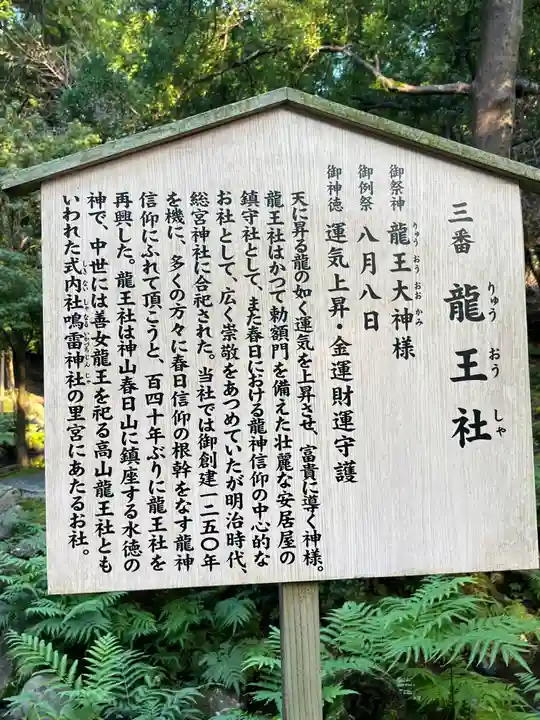 三番 龍王社
りゅう おう しゃ
御祭神 龍王大神様
りゅう おう おお かみ
御例祭 八月八日
御神徳 運気上昇・金運財運守護
天に昇る龍の如く運気を上昇させ、富貴に導く神様。
龍王社はかつて勅額門を備えた壮麗な安居屋の
鎮守社として、また春日における龍神信仰の中心的な
お社として、広く崇敬をあつめていたが明治時代、
総宮神社に合祀された。当社では御創建一二五〇年
を機に、多くの方々に春日信仰の根幹をなす龍神
信仰にふれて頂こうと、百四十年ぶりに龍王社を
再興した。龍王社は神山春日山に鎮座する水徳の
神で、中世には善女龍王を祀る高山龍王社とも
いわれた式内社鳴雷神社の里宮にあたるお社。
しきないしゃなるいかづちじんじゃ